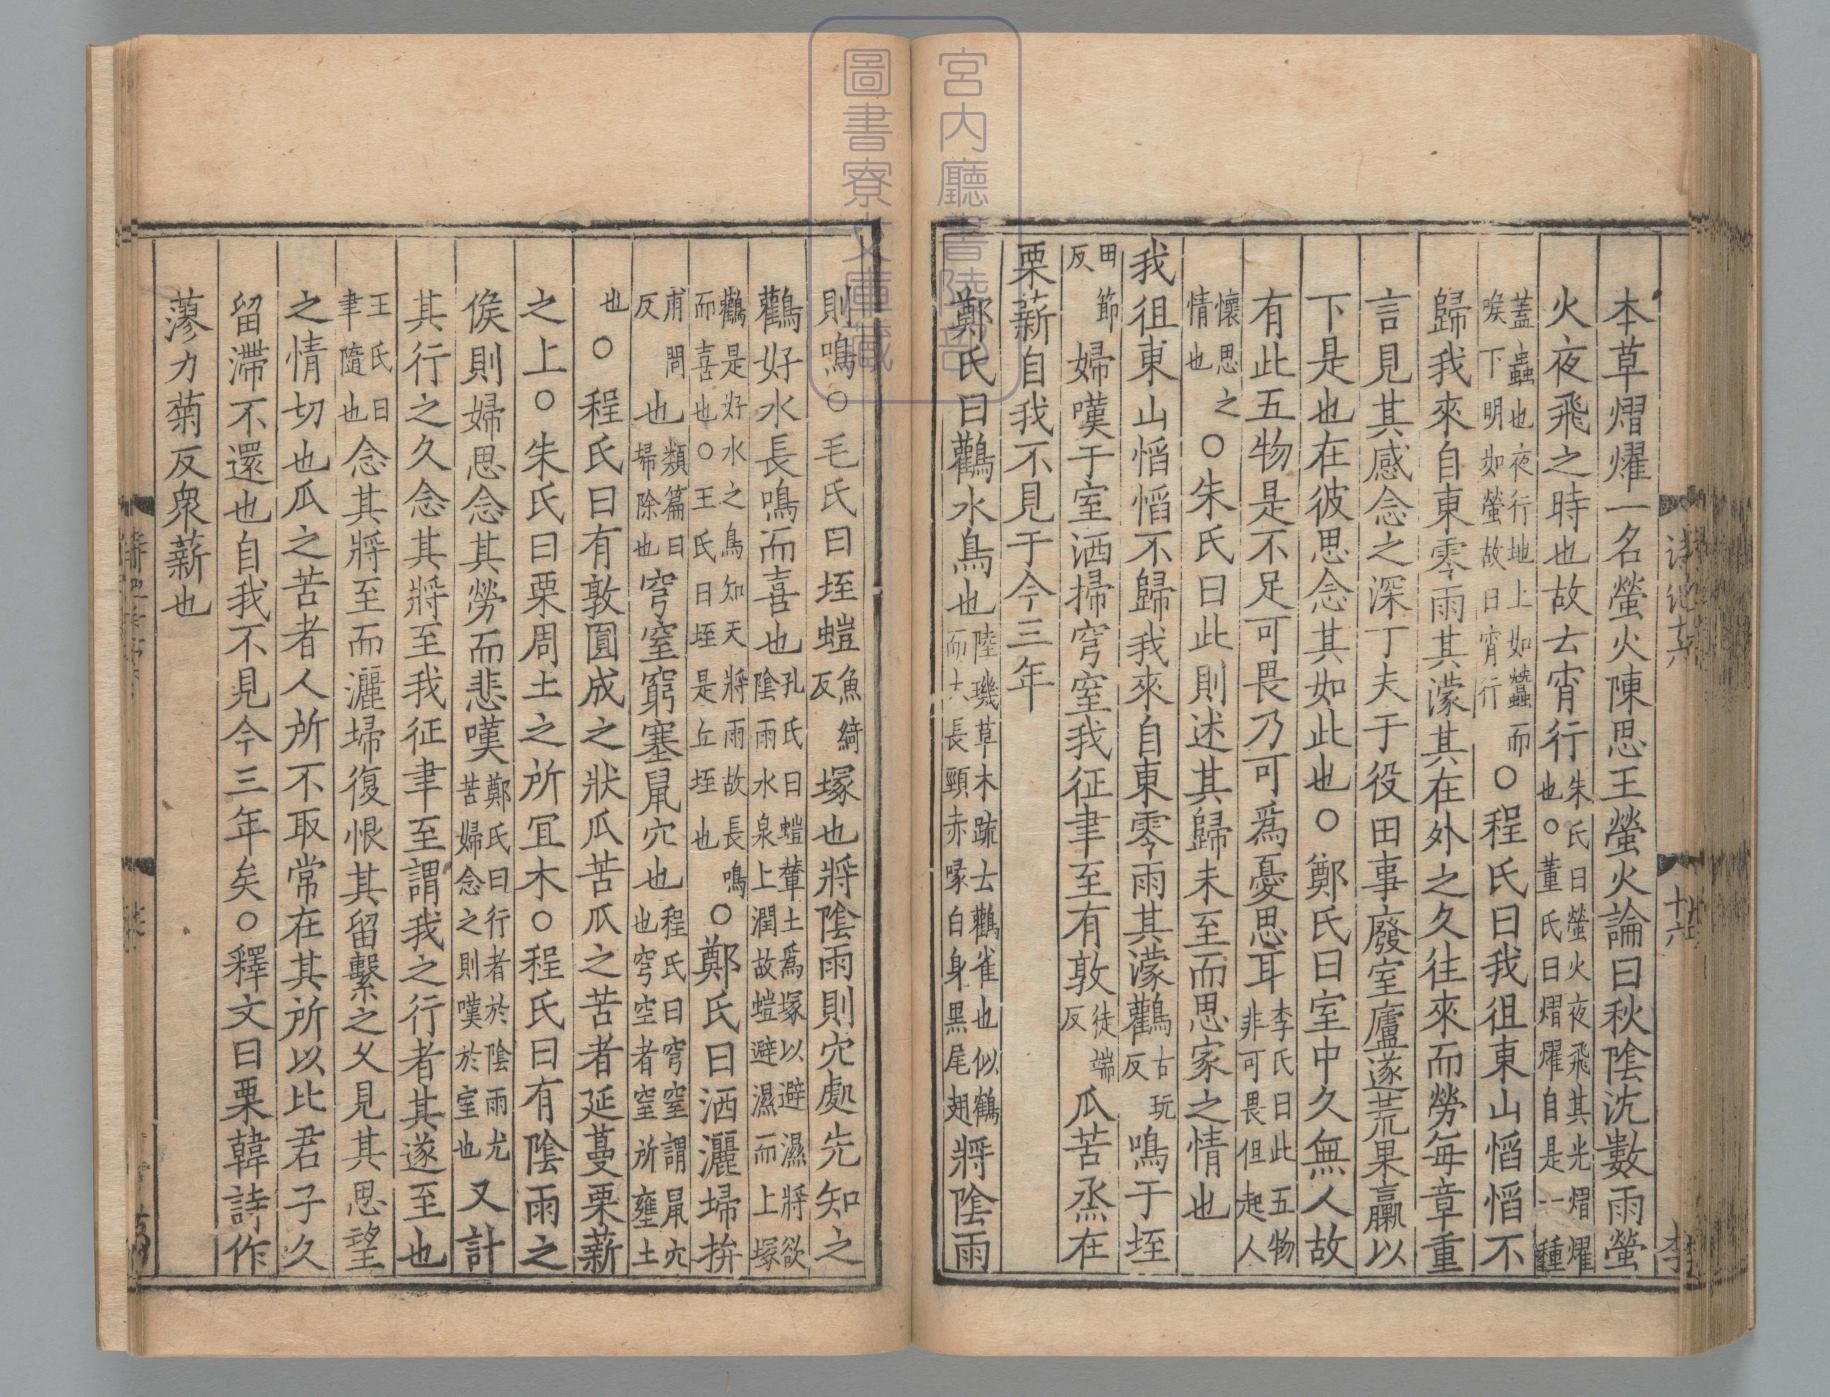 本草熠燿一名螢火陳思王螢火論曰秋陰沈數雨螢
火夜飛之時也故云宵行朱氏曰螢火夜飛其光熠燿也○董氏曰熠燿自是一種
蓋蟲也夜行地上如蠶而喉下明如螢故曰宵行○程氏曰我徂東山慆慆不
歸我來自東零雨其濛其在外之久往來而勞每章重
言見其感念之深丁夫于役田事廢室廬遂荒果臝以
下是也在彼思念其如此也○鄭氏曰室中久無人故
有此五物是不足可畏乃可爲憂思耳李氏曰此五物非可畏但起人
懷思之情也○朱氏曰此則述其歸未至而思家之情也
我徂東山慆慆不歸我來自東零雨其濛鸛古玩反鳴于垤
田節反婦嘆于室洒掃穹窒我征聿至有敦徒端反瓜苦烝在
栗薪自我不見于今三年
鄭氏曰鸛水鳥也陸璣草木疏云鸛雀也似鶴而大長頸赤喙白身黑尾翅將陰雨
則鳴○毛氏曰垤螘魚綺反塚也將陰雨則穴處先知之
鸛好水長鳴而喜也孔氏曰螘輦土爲塚以避濕將欲陰雨水泉上潤故螘避濕而上塚
鸛是好水之鳥知天將雨故長鳴而喜也○王氏曰垤是丘垤也○鄭氏曰洒灑埽拚
甫問反也類篇曰埽除也穹窒窮塞鼠穴也程氏曰穹窒謂鼠穴也穹空者窒所壅土
也○程氏曰有敦圓成之狀瓜苦瓜之苦者延蔓栗薪
之上○朱氏曰栗周土之所宜木○程氏曰有陰雨之
候則婦思念其勞而悲嘆鄭氏曰行者於陰雨尤苦婦念之則嘆於室也又計
其行之久念其將至我征聿至謂我之行者其遂至也
王氏曰聿隨也念其將至而灑埽復恨其留繫之乆見其思望
之情切也瓜之苦者人所不取常在其所以比君子久
留滯不還也自我不見今三年矣○釋文曰栗韓詩作
蓼力菊反衆薪也
詩紀
十六
李
宮内廳書陵部
圖書寮文庫藏